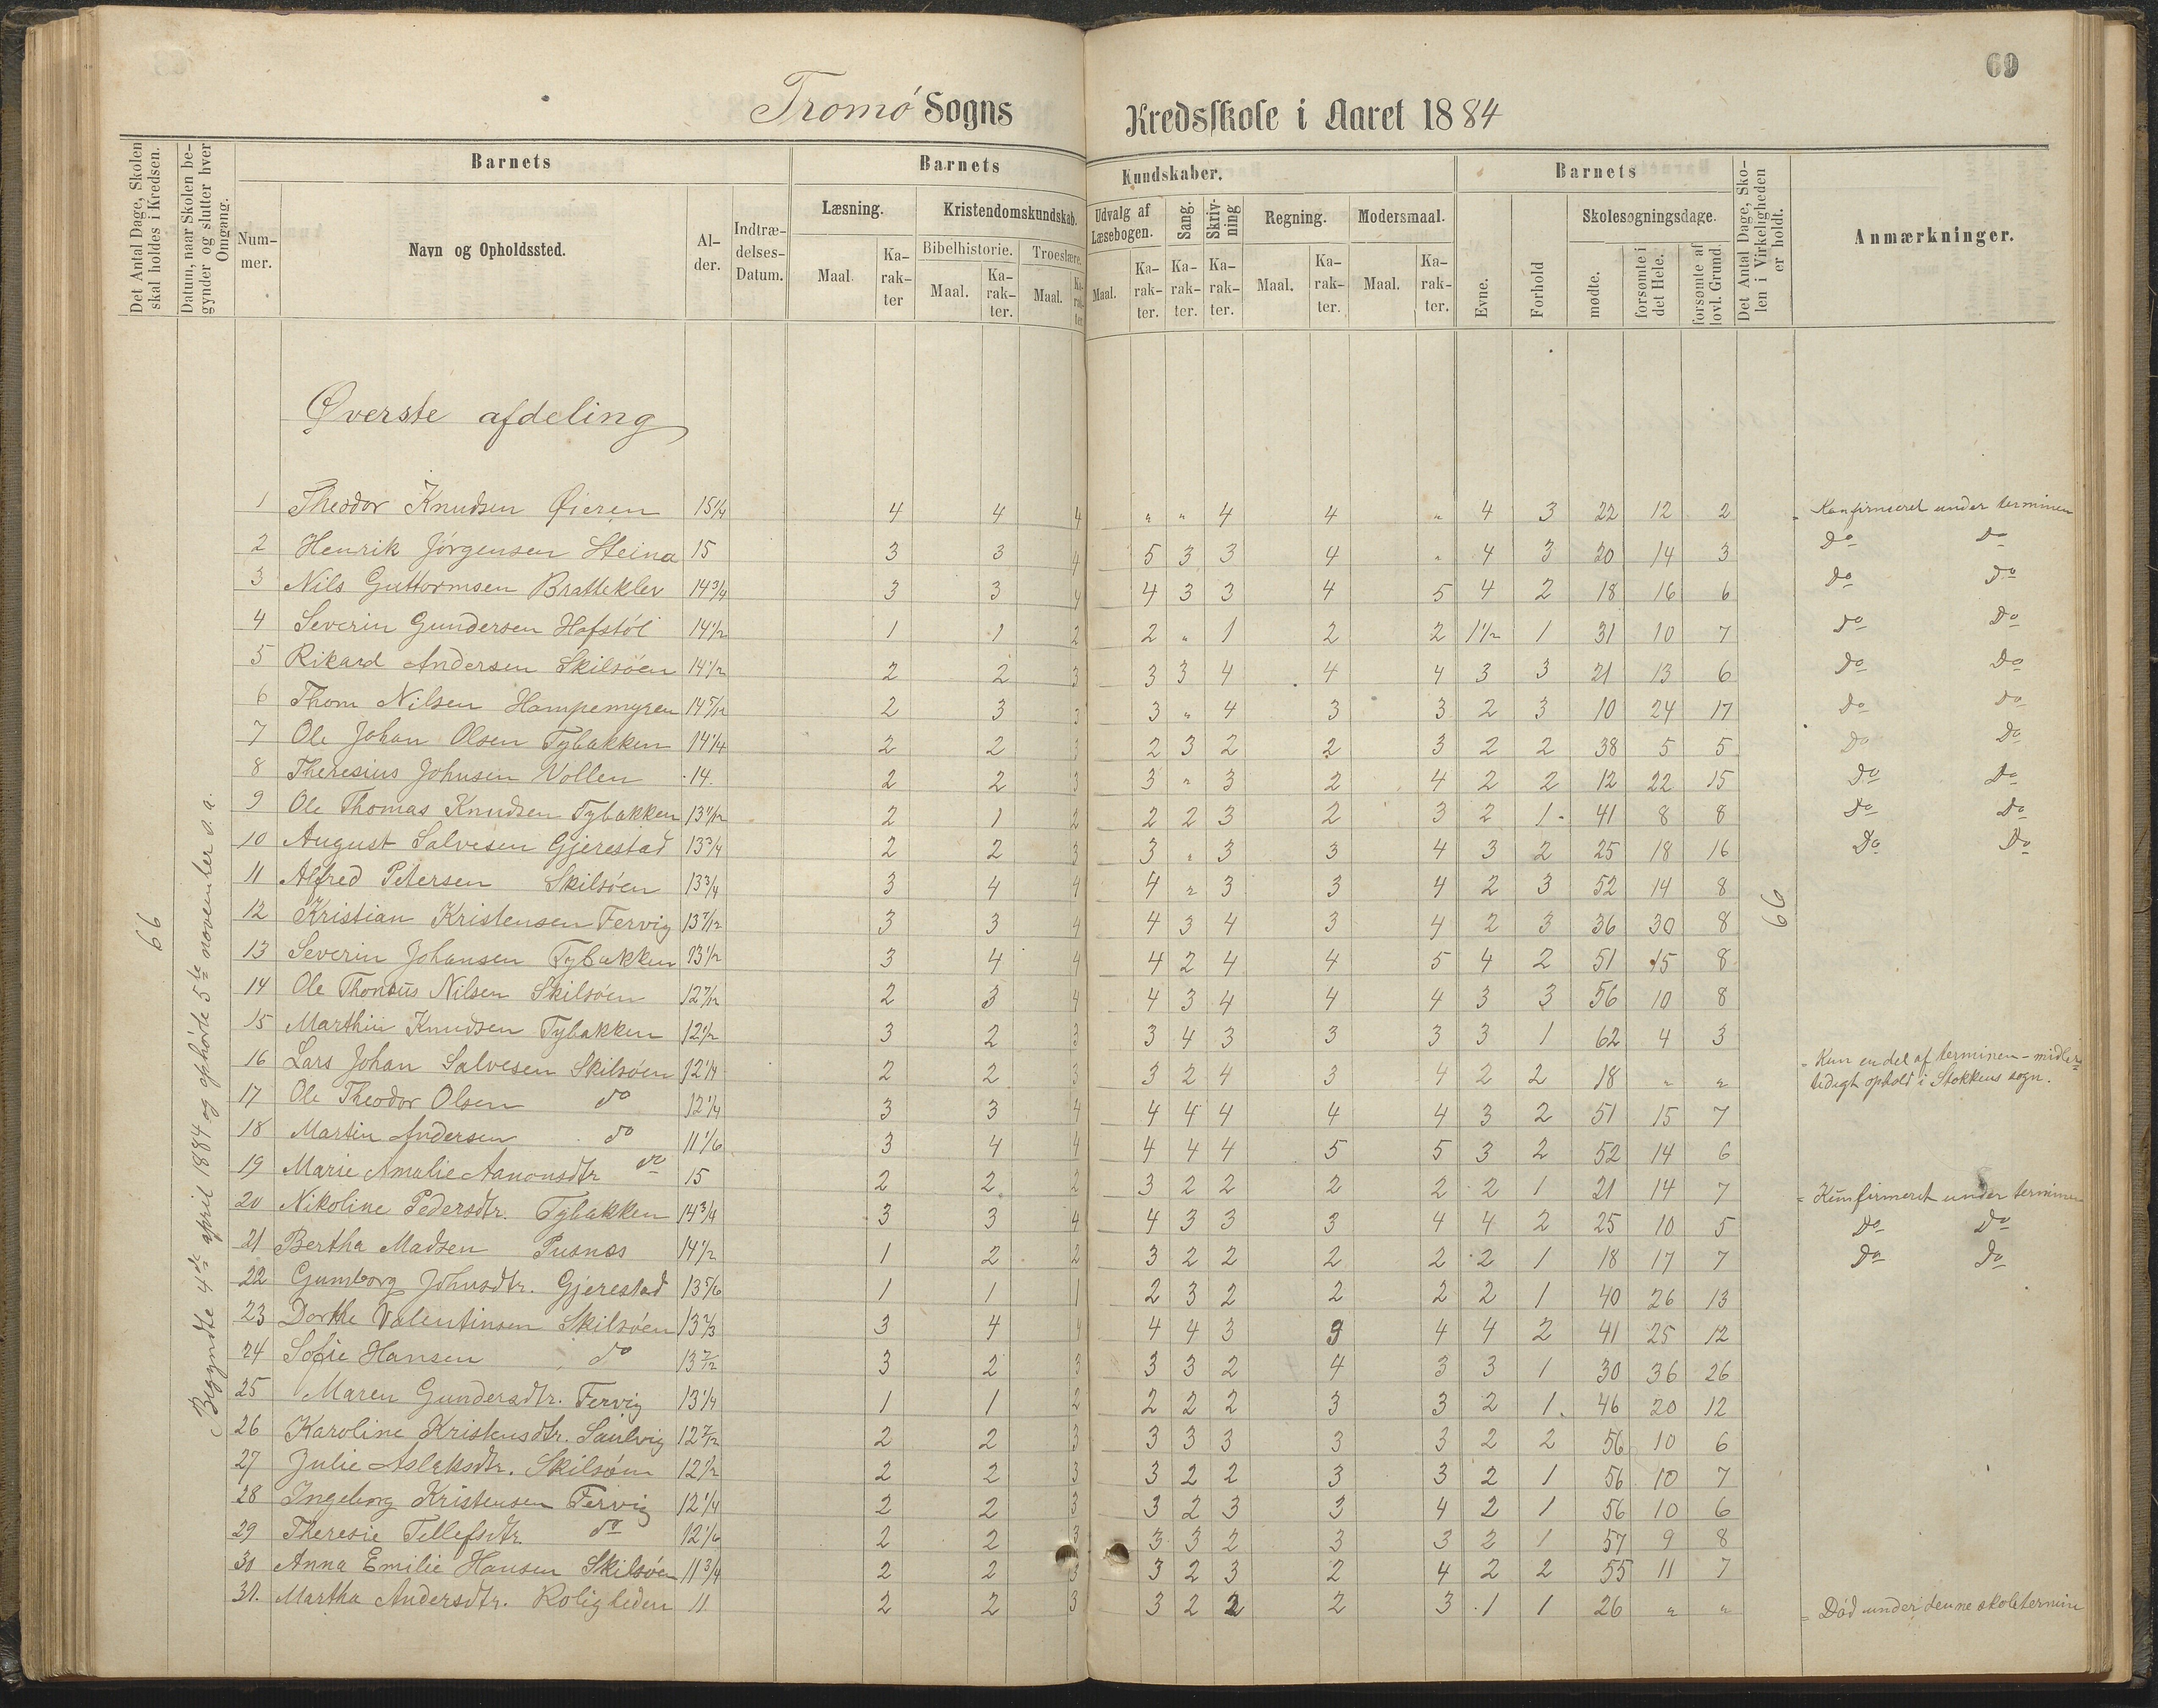 69
Tromø Sogns Kredsskole i Aaret 1884
Det Antal Dage, Skolen skal holdes i Kredsen.
Datum, naar Skolen begynder og slutter hver Omgang.
Barnets
Barnets Kundskaber.
Barnets
Det Antal Dage, Skolen i Virkeligheden er holdt.
Anmærkninger.
Nummer.
Navn og Opholdssted.
Alder.
Indtrædelses-Datum.
Læsning.
Kristendomskundskab.
Udvalg af Læsebogen.
Sang.
Skrivning
Regning.
Modersmaal.
Evne.
Forhold
Skolesøgningsdage.
Bibelhistorie.
Troeslære.
Maal.
Karakter
Maal.
Karakter.
Maal.
Karakter
Maal.
Karakter.
Karakter.
Karakter.
Maal.
Karakter.
Maal.
Karakter.
mødte.
forsømte i det Hele.
forsømte af lovl. Grund.
66
Begyndte 4de april 1884 og ophørte 5te november s. a.
66
Øverste afdeling
1 Theodor Knudsen Øieren 15 1/4 4 4 4 " " 4 4 " 4 3 22 12 2 Konfirmeret under terminen
2 Henrik Jørgensen Steina 15 3 3 4 5 3 3 4 " 4 3 20 14 3 Do Do
3 Nils Guttormsen Bratteklev 14 3/4 3 3 4 4 3 3 4 5 4 2 18 16 6 Do Do
4 Severin Gundersen Hafstøl 14 1/2 1 1 2 2 " 1 2 2 1 1/2 1 31 10 7 Do Do
5 Rikard Andersen Skilsøen 14 1/2 2 2 3 3 3 4 4 4 3 3 21 13 6 Do Do
6 Thom Nilsen Hampemyren 14 5/12 2 3 3 3 " 4 3 3 2 3 10 24 17 Do Do
7 Ole Johan Olsen Tybakken 14 1/4 2 2 3 2 3 2 2 3 2 2 38 5 5 Do Do
8 Theresius Johnsen Vollen 14. 2 2 3 3 " 3 2 4 2 2 12 22 15 Do Do
9 Ole Thomas Knudsen Tybakken 13 11/12 2 1 2 2 2 3 2 3 2 1 41 8 8 Do Do
10 August Salvesen Gjerestad 13 3/4 2 2 3 3 " 3 3 4 3 2 25 18 16 Do Do
11 Alfred Petersen Skilsøen 13 3/4 3 4 4 4 " 3 3 4 2 3 52 14 8
12 Kristian Kristensen Fervig 13 7/12 3 3 4 4 3 4 3 4 2 3 36 30 8
13 Severin Johansen Tybakken 13 1/2 3 4 4 4 2 4 4 5 4 2 51 15 8
14 Ole Thonius Nilsen Skilsøen 12 7/12 2 3 4 4 3 4 4 4 3 3 56 10 8
15 Marthin Knudsen Tybakken 12 1/2 3 2 3 3 4 3 3 3 3 1 62 4 3
16 Lars Johan Salvesen Skilsøen 12 1/4 2 2 3 3 2 4 3 4 2 2 18 " " Kun en del af terminen - midlertidigt ophold i Stokkens sogn.
17 Ole Theodor Olsen do 12 1/4 3 3 4 4 4 4 4 4 3 2 51 15 7
18 Martin Andersen do 11 1/6 3 4 4 4 4 4 5 5 3 2 52 14 6
19 Marie Amalie Aanonsdtr do 15 2 2 2 3 2 2 2 2 2 1 21 14 7 Konfirmeret under terminen
20 Nikoline Pedersdtr. Tybakken 14 3/4 3 3 4 4 3 3 3 4 4 2 25 10 5 Do Do
21 Bertha Madsen Pusnæs 14 1/2 1 2 2 3 2 2 2 2 2 1 18 17 7 Do Do
22 Gumborg Johnsdtr. Gjerestad 13 5/6 1 1 1 2 3 2 2 2 2 1 40 26 13
23 Dorthe Valentinsen Skilsøen 13 2/3 3 4 4 4 4 3 9 4 4 2 41 25 12
24 Sofie Hansen do 13 7/12 3 2 3 3 3 2 4 3 3 1 30 36 26
25 Maren Gundersdtr. Fervig 13 1/4 1 1 2 2 2 2 3 3 2 1 46 20 12
26 Karoline Kristensdtr. Saulvig 12 7/12 2 2 3 3 3 3 3 3 2 2 56 10 6
27 Julie Aslaksdtr. Skilsøen 12 1/2 2 2 3 3 2 2 3 3 2 1 56 10 7
28 Ingeborg Kristensen Fervig 12 1/4 2 2 3 3 2 3 3 4 2 1 56 10 6
29 Theresie Tellefsdtr. do 12 1/6 2 2 3 3 3 2 3 3 2 1 57 9 8
30 Anna Emilie Hansen Skilsøen 11 3/4 2 2 3 3 2 3 2 4 2 2 55 11 7
31. Martha Andersdtr. Roligheden 11 2 2 3 3 2 2 2 3 1 1 26 " " Død under denne skoletermin